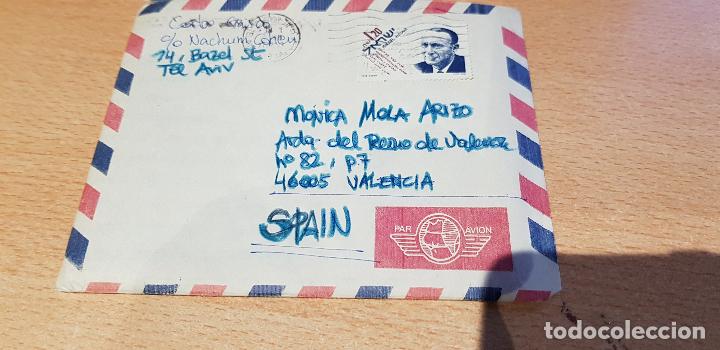 c/o Nachum Cohen
14, Bazel St
TEL AVIV
20
ישראל
MONICA MOLA ARIZO
Avda. del Reino de Valencia
nº 82, p7
46005 VALENCIA
SPAIN
PAR AVION
todocoleccion